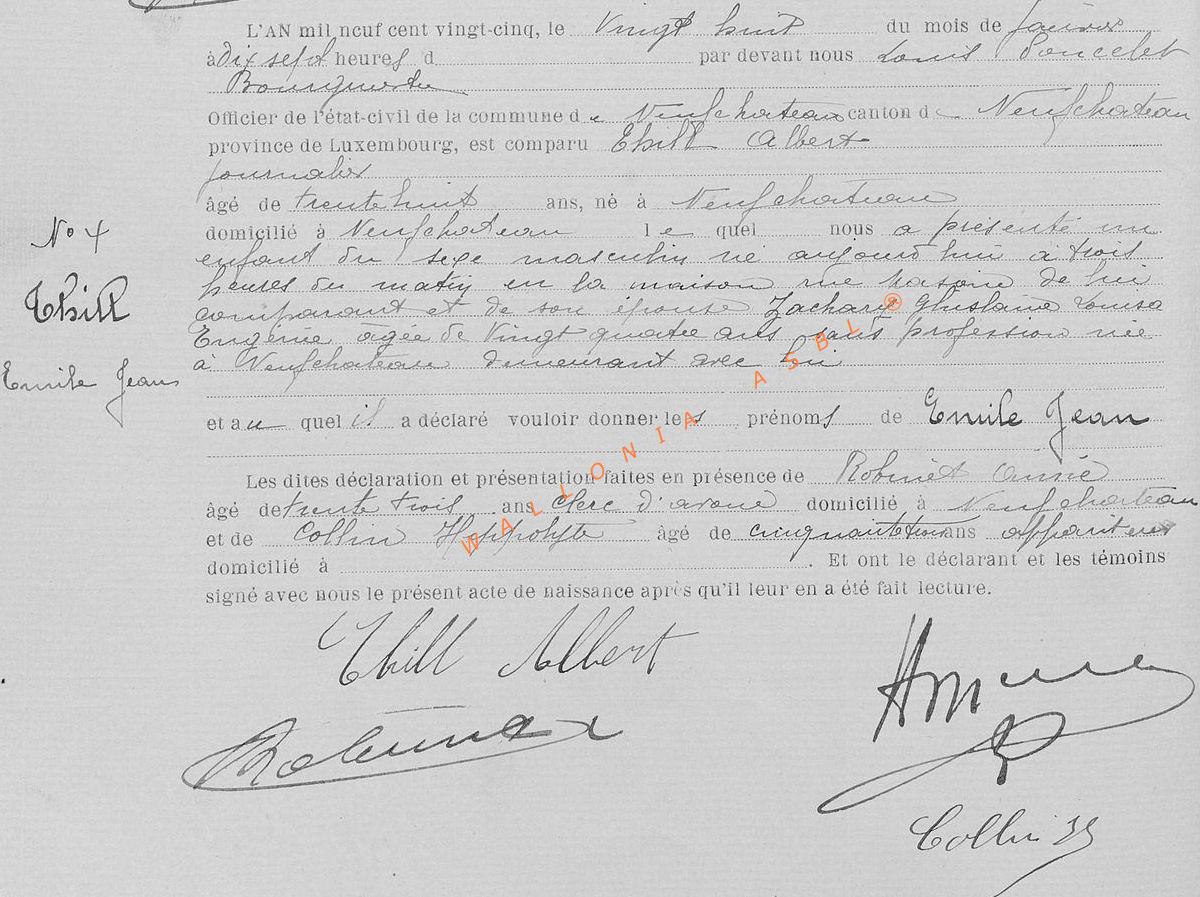 L'AN mil neuf cent vingt-cinq, le Vingt huit du mois de janvier
à Dix sept heures d par devant nous Louis Poncelet
Bourgmestre
Officier de l'état-civil de la commune de Neufchateau canton de Neufchateau
province de Luxembourg, est comparu Thill Albert
journalier
âgé de trente huit ans, né à Neufchateau
No 4
domicilié à Neufchateau le quel nous a présenté un
enfant du sexe masculin né aujourd'hui à trois
Thill
heures du matin en la maison rue de lui
comparant et de son épouse Zachary Ghislaine
Eugénie agée de Vingt quatre ans sans profession née
à Neufchateau demeurant avec lui
Emile Jean
et au quel il a déclaré vouloir donner les prénoms de Emile Jean
Les dites déclaration et présentation faites en présence de Robinet
âgé de trente trois ans clerc d'avoué domicilié à Neufchateau
et de Collin Hippolyte âgé de cinquante trois ans appariteur
domicilié à . Et ont le déclarant et les témoins
signé avec nous le présent acte de naissance après qu'il leur en a été fait lecture.
Thill Albert
Collin
WALLONIA ASBL ®